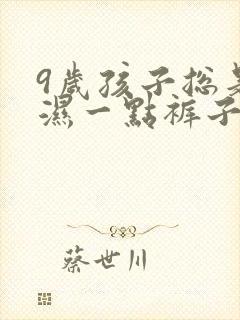 9歲孩子總是
濕一點褲子
蔡世川